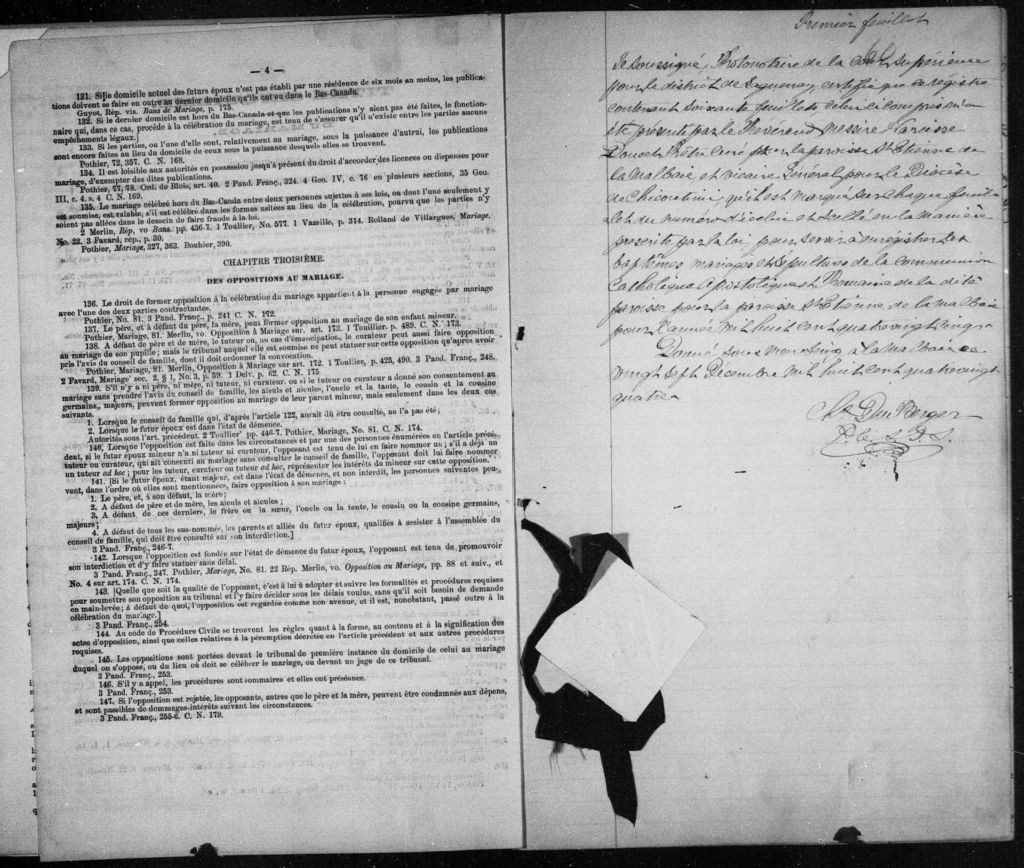 — 4 —
131. Si le domicile actuel des futurs époux n'est pas établi par une résidence de six mois au moins, les publica-
tions doivent se faire en outre au dernier domicile qu'ils ont eu dans le Bas-Canada.
Guyot, Rép. vis. Bans de Mariage, p. 175.
132. Si le dernier domicile est hors du Bas-Canada et que les publications n'y aient pas été faites, le fonction-
naire qui, dans ce cas, procède à la célébration du mariage, est tenu de s'assurer qu'il n'existe entre les parties aucuns
empêchements légaux.
133. Si les parties, ou l'une d'elle sont, relativement au mariage, sous la puissance d'autrui, les publications
sont encore faites au lieu du domicile de ceux sous la puissance desquels elles se trouvent.
Pothier, 72, 357. C. N. 168.
134. Il est loisible aux autorités en possession jusqu'à présent du droit d'accorder des licences ou dispenses pour
mariage, d'exempter des dites publications.
Pothier, 77, 78. Ord. de Blois, art. 40. 2 Pand. Franç., 324. 4 Geo. IV, c. 76 en plusieurs sections, 35 Geo.
III, c. 4. s. 4 C. N. 169.
135. Le mariage célébré hors du Bas-Canda entre deux personnes sujettes à ses lois, ou dont l'une seulement y
est soumise, est valable, s'il est célébré dans les formes usitées au lieu de la célébration, pourvu que les parties n'y
soient pas allées dans le dessein de faire fraude à la loi.
2 Merlin, Rép, vo Bans. pp. 436-7. 1 Toullier, No. 577. 1 Vazeille, p. 314. Rolland de Villargues, Mariage,
No. 22. 3 Favard, rép., p. 30.
Pothier, Mariage, 327, 363. Bouhier, 390.
CHAPITRE TROISIÈME.
DES OPPOSITIONS AU MARIAGE.
136. Le droit de former opposition à la célébration du mariage appartient à la personne engagée par mariage
avec l'une des deux parties contractantes.
Pothier, No. 81. 3 Pand. Franç., p. 241 C. N. 172.
137. Le père, et à défaut du père, la mère, peut former opposition au mariage de son enfant mineur.
Pothier, Mariage, 81. Merlin, vo. Opposition à Mariage sur. art. 173. 1 Touillier. p. 489. C. N. 173.
138. A défaut de père et de mère, le tuteur ou, au cas d'émancipation, le curateur peut aussi faire opposition
au mariage de son pupille; mais le tribunal auquel elle est soumise ne peut statuer sur cette opposition qu'après avoir
pris l'avis du conseil de famille, dont il doit ordonner la convocation.
Pothier, Mariage, 81. Merlin, Opposition à Mariage sur art. 172. 1 Toullier, p. 425, 490. 3 Pand. Franç., 248.
2 Favard, Mariage sec. 2, § 1, No. 3, p. 59. 1 Delv. p. 62. C. N. 175
139. S'il n'y a ni père, ni mère, ni tuteur, ni curateur. ou si le tuteur ou curateur a donné son consentement au
mariage sans prendre l'avis du conseil de famille, les aïeuls et aïeules, l'oncle et la tante, le cousin et la cousine
germains, majeurs, peuvent former opposition au mariage de leur parent mineur, mais seulement dans les deux cas
suivants.
1. Lorsque le conseil de famille qui, d'après l'article 122, aurait dû être consulté, ne l'a pas été;
2. Lorsque le futur époux est dans l'état de démence.
Autorités sous l'art. précédent. 2 Toullier pp. 446-7. Pothier, Mariage, No. 81. C. N. 174.
140. Lorsque l'opposition est faite dans les circonstances et par une des personnes énumérées en l'article précé-
dent, si le futur époux mineur n'a ni tuteur ni curateur, l'opposant est tenu de lui en faire nommer un; s'il a déjà un
tuteur ou curateur, qui ait consenti au mariage sans consulter le conseil de famille, l'opposant doit lui faire nommer
un tuteur ad hoc; pour les tuteur, curateur ou tuteur ad hoc, représenter les intérêts du mineur sur cette opposition.
141. [Si le futur époux, étant majeur, est dans l'état de démence, et non interdit, les personnes suivantes peu-
vent, dans l'ordre où elles sont mentionnées, faire opposition à son mariage:
1. Le père, et, à son défaut, la mère;
2. A défaut de père et de mère, les aïeuls et aïeules;
3. A défaut de ces derniers, le frère ou la sœur, l'oncle ou la tante, le cousin ou la cousine germains,
majeurs;
4. A défaut de tous les sus-nommés, les parents et alliés du futur époux, qualifiés à assister à l'assemblée du
conseil de famille, qui doit être consulté sur son interdiction.]
3 Pand. Franç., 246-7.
142. Lorsque l'opposition est fondée sur l'état de démence du futur époux, l'opposant est tenu de promouvoir
son interdiction et d'y faire statuer sans délai.
3 Pand. Franç., 247. Pothier, Mariage, No. 81. 22 Rép. Merlin, vo. Opposition au Mariage, pp. 88 et suiv., et
No. 4 sur art. 174. C. N. 174.
143. [Quelle que soit la qualité de l'opposant, c'est à lui à adopter et suivre les formalités et procédures requises
pour soumettre son opposition au tribunal et l'y faire décider sous les délais voulus, sans qu'il soit besoin de demande
en main-levée; à défaut de quoi, l'opposition est regardée comme non avenue, et il est, nonobstant, passé outre à la
célébration du mariage.]
3 Pand. Franç., 254.
144. Au code de Procédure Civile se trouvent les règles quant à la forme, au contenu et à la signification des
actes d'opposition, ainsi que celles relatives à la péremption décrétée en l'article précédent et aux autres procédures
requises.
145. Les oppositions sont portées devant le tribunal de première instance du domicile de celui au mariage
duquel on s'oppose, ou du lieu où doit se célébrer le mariage, ou devant un juge de ce tribunal.
3 Pand. Franç., 253.
146. S'il y a appel, les procédures sont sommaires et elles ont préséance.
3 Pand. Franç., 253.
147. Si l'opposition est rejetée, les opposants, autres que le père et la mère, peuvent être condamnés aux dépens,
et sont passibles de dommages-intérêts suivant les circonstances.
3 Pand. Franç., 255-6. C. N. 179.
Premier feuillet
Je soussigné Protonotaire de la Cour Supérieure
pour le district de Saguenay, certifie que ce registre
contenant soixante feuillets celui ci compris m'a
été présenté par le Révérend Messire Narcisse
Doucet Prêtre Curé pour la paroisse St Etienne de
la Malbaie et vicaire Général pour le Diocèse
de Chicoutimi, qu'il est marqué sur chaque feuil-
let du numéro d'icelui et scellé en la manière
prescrite par la loi pour servir à enregistrer les
baptêmes mariages et sépultures de la communion
Catholique Apostolique et Romaine de la dite
paroisse pour la paroisse St Etienne de la Malbaie
pour l'année mil huit cent quatrevingt cinq
Donné sous mon seing à la Malbaie ce
vingt sept Decembre mil huit cent quatrevingt
quatre
Chs Du Berger
P. C. S. D. S.